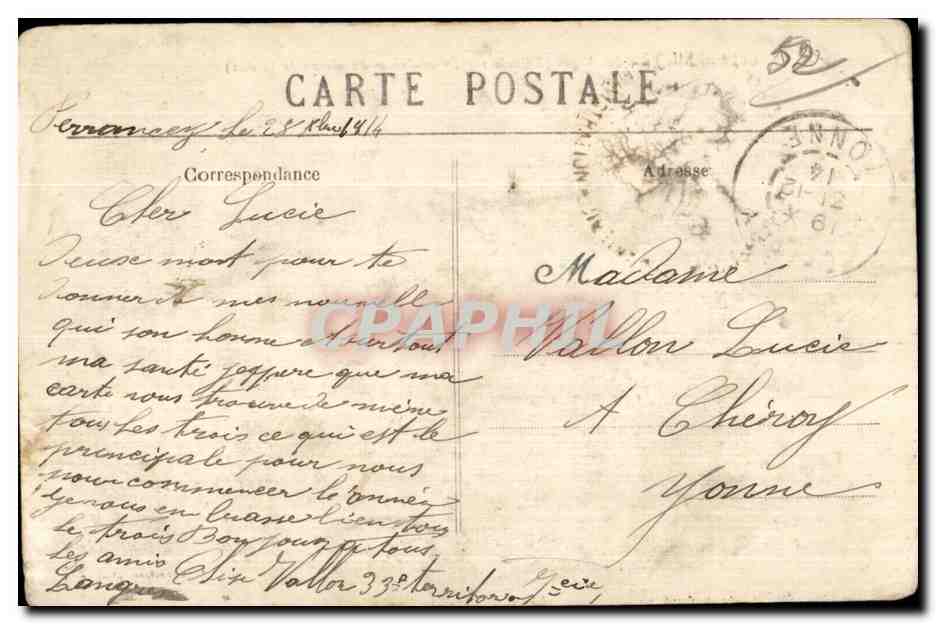 52
CARTE POSTALE
Perrancey le 28 Xbre 1914
Correspondance
Adresse
YONNE
14
31-12
19
Cher Lucie
Deuse mort pour te
donner de mes nouvelle
qui son bonne et surtout
ma santé jespere que ma
carte vous trouve de même
tous les trois ce qui est le
principale pour nous
pour commencer le année
je vous en brasse bien tous
le trois Bonjour a tous
les amis
Langres Vallon 33e territor
Madame
Vallon Lucie
A Chéroy
Yonne
CPAPHIL